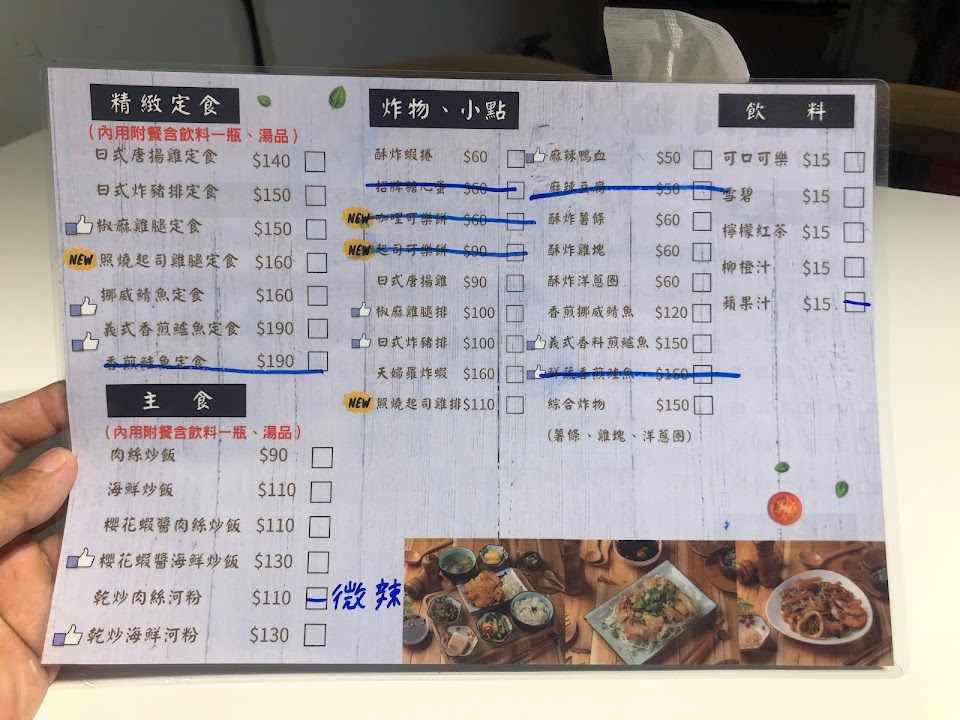 精緻定食
(內用附餐含飲料一瓶、湯品)
日式唐揚雞定食 $140
日式炸豬排定食 $150
椒麻雞腿定食 $150
NEW 照燒起司雞腿定食 $160
挪威鯖魚定食 $160
義式香煎鱸魚定食 $190
香煎鮭魚定食 $190
主食
(內用附餐含飲料一瓶、湯品)
肉絲炒飯 $90
海鮮炒飯 $110
櫻花蝦醬肉絲炒飯 $110
櫻花蝦醬海鮮炒飯 $130
乾炒肉絲河粉 $110 微辣
乾炒海鮮河粉 $130
炸物、小點
酥炸蝦捲 $60
招牌糖心蛋 $60
NEW 咖哩可樂餅 $60
NEW 起司可樂餅 $90
日式唐揚雞 $90
椒麻雞腿排 $100
日式炸豬排 $100
天婦羅炸蝦 $160
NEW 照燒起司雞排 $110
麻辣鴨血 $50
麻辣豆腐 $50
酥炸薯條 $60
酥炸雞塊 $60
酥炸洋蔥圈 $60
香煎挪威鯖魚 $120
義式香料煎鱸魚 $150
鮮蔬香煎鮭魚 $160
綜合炸物 $150
(薯條、雞塊、洋蔥圈)
飲料
可口可樂 $15
雪碧 $15
檸檬紅茶 $15
柳橙汁 $15
蘋果汁 $15.